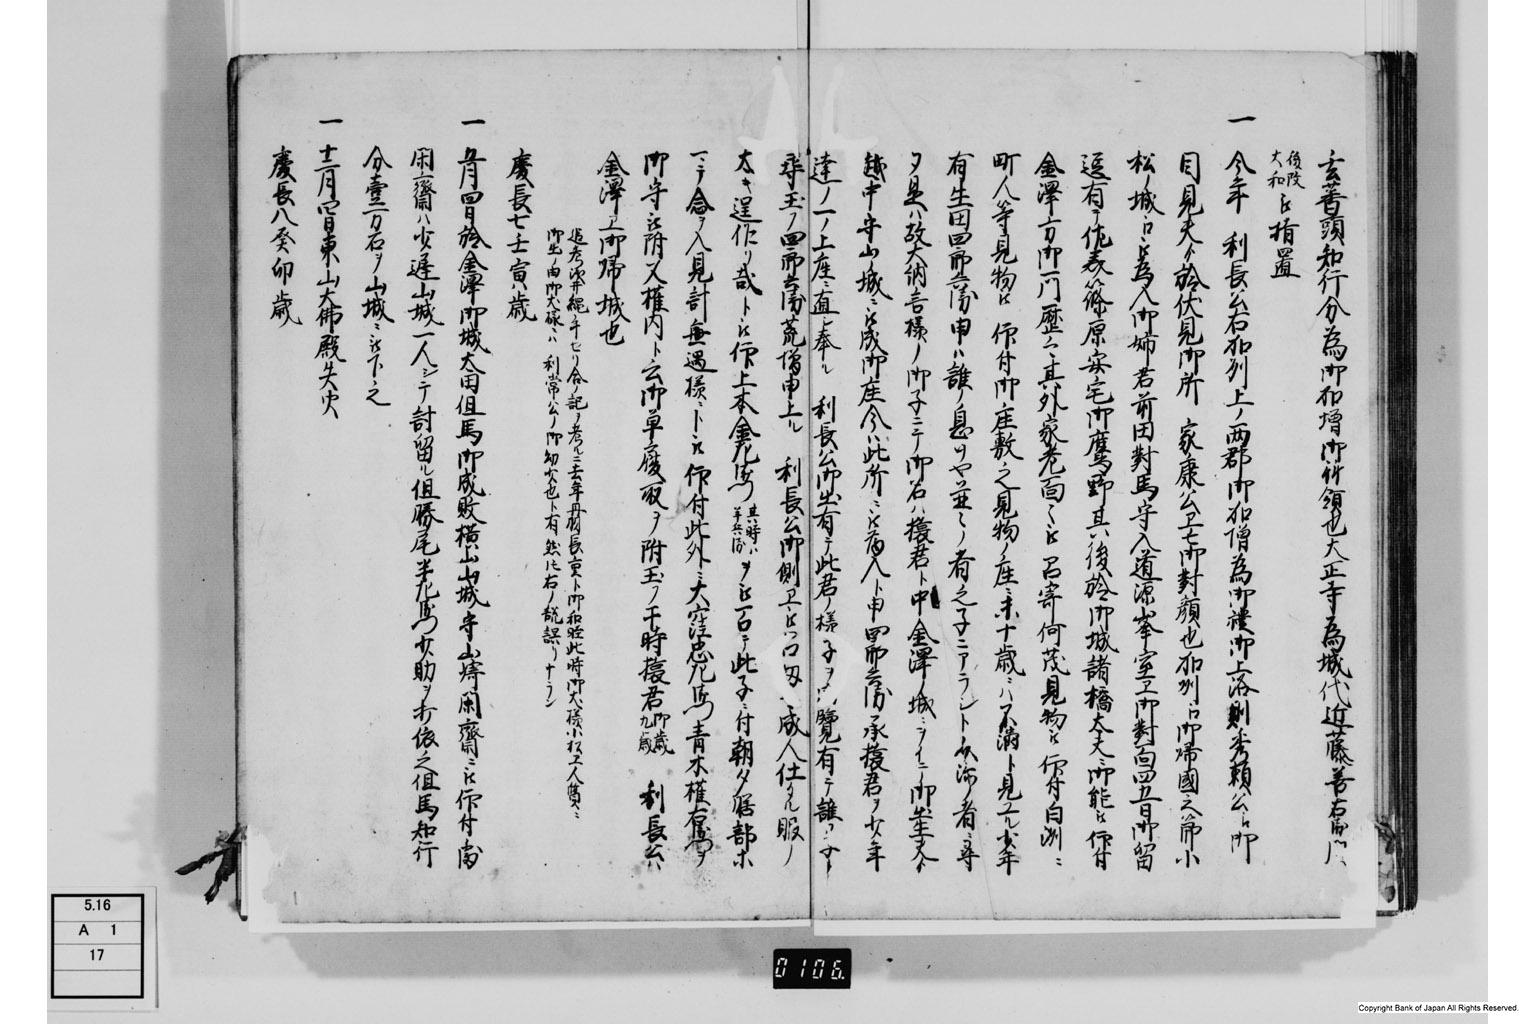 玄蕃頭知行分為御加増御拝領也大正寺為城代近藤善右衛門
後改大和
被指置
一 今年 利長公石加列上ノ両郡御加増為御禮御上洛則秀頼公江御
目見夫ゟ於伏見御所 家康公江も御對顔也加列江御帰國之節小
松ノ城江被為入御姉君前田對馬守入道源峯室江御對面四五日御留
逗有テ作表篠原宅御鷹野其後於御城諸橋太夫御能被 仰付
金澤方御門歴々其外家老面々被召寄何茂見物被 仰付白洲ニ
町人等見物被 仰付御座敷之見物ノ座ニ未十歳ニハ不満ト見エル少年
有生田四郎兵衛申ハ誰ノ息ソヤ並々ノ者之子ニアラント
夕見ハ故大納言様ノ御子ニテ御名ハ猿君ト申金澤ノ城ニヲイテ御出生夫ゟ
越中守山ノ城ニ被成御座今ハ此所ニ被為入ト申四郎兵衛承猿君ヲ少年
達ノ一ノ上座ニ直シ奉ル 利長公御出有テ此君ノ様子ヲ御覧有テ誰
尋玉フ四郎兵衛荒増申上ル 利長公御側江被召扨々成人仕タル眼ノ
大キ逞作リ哉ト被 仰上本金左衛門
其時ハ半兵衛
ヲ被召テ此子ニ付朝夕膳部ホ
一ニ念ヲ入見計無過様ニト被 仰付此外ニ大窪忠左衛門青木權右衛門ヲ
御守被附又權内ト云御草履取ヲ附玉フ干時猿君御歳九歳 利長公ハ
金澤江御帰城也
追考浅井縄手セリ合ノ記ヲ考ルニ去年丹羽長重ト御和睦此時御犬様小松江人質ニ
御出ノ由御犬様ハ 利常公ノ御幼少也ト有 然共右ノ説誤リナラン
慶長七壬寅歳
一 五月四日於金澤御城太田但馬御成敗横山山城守山﨑閑齋ニ被 仰付處
閑齋ハ少遅山城一人シテ討留ル但勝尾半左衛門少助ヲ打依之但馬知行
分壹万石ヲ山城ニ被下之
一 十二月四日東山大佛殿失火
慶長八癸卯歳
5.16
A 1
17
0106
Copyright Bank of Japan All Rights Reserved.